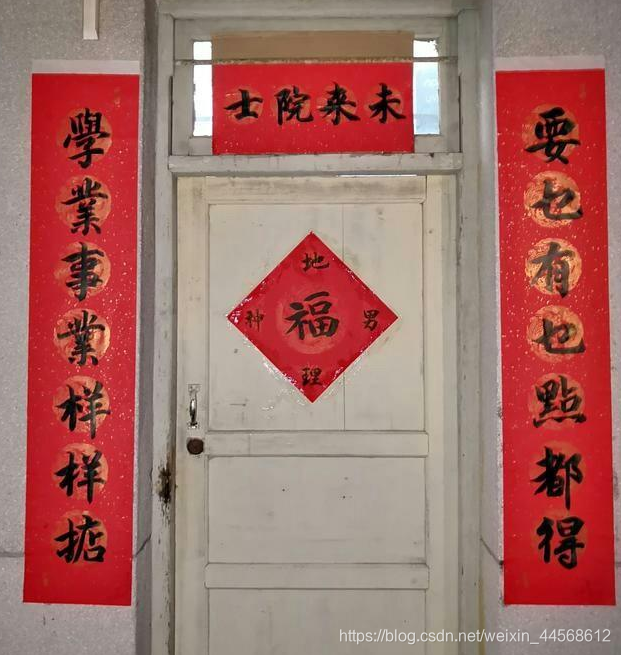 未来院士
要乜有乜點都得
學業事業样样掂
地理
男神
福
https://blog.csdn.net/weixin_44568612